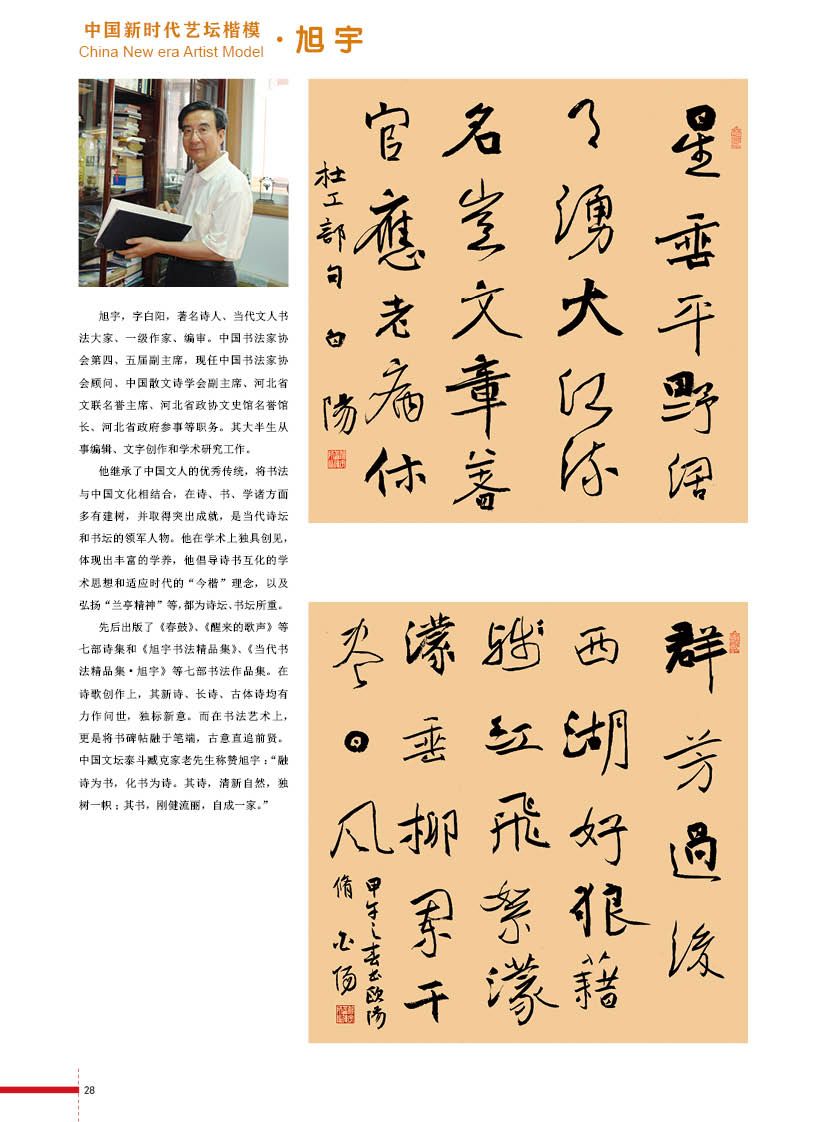 中国新时代艺坛楷模
China New era Artist Model
·旭宇
旭宇，字白阳，著名诗人、当代文人书
法大家、一级作家、编审。中国书法家协
会第四、五届副主席，现任中国书法家协
会顾问、中国散文诗学会副主席、河北省
文联名誉主席、河北省政协文史馆名誉馆
长、河北省政府参事等职务。其大半生从
事编辑、文字创作和学术研究工作。
他继承了中国文人的优秀传统，将书法
与中国文化相结合，在诗、书、学诸方面
多有建树，并取得突出成就，是当代诗坛
和书坛的领军人物。他在学术上独具创见，
体现出丰富的学养，他倡导诗书互化的学
术思想和适应时代的“今楷”理念，以及
弘扬“兰亭精神”等，都为诗坛、书坛所重。
先后出版了《春鼓》、《醒来的歌声》等
七部诗集和《旭宇书法精品集》、《当代书
法精品集·旭宇》等七部书法作品集。在
诗歌创作上，其新诗、长诗、古体诗均有
力作问世，独标新意。而在书法艺术上，
更是将书碑帖融于笔端，古意直追前贤。
中国文坛泰斗臧克家老先生称赞旭宇：“融
诗为书，化书为诗。其诗，清新自然，独
树一帜；其书，刚健流丽，自成一家。”
星垂平野阔
月湧大江流
名豈文章著
官應老病休
杜工部句 白陽
群芳過後
西湖好狼籍
残紅飛絮濛
濛垂柳闌干
尽日风
甲午之春書歐陽
脩 白陽
28